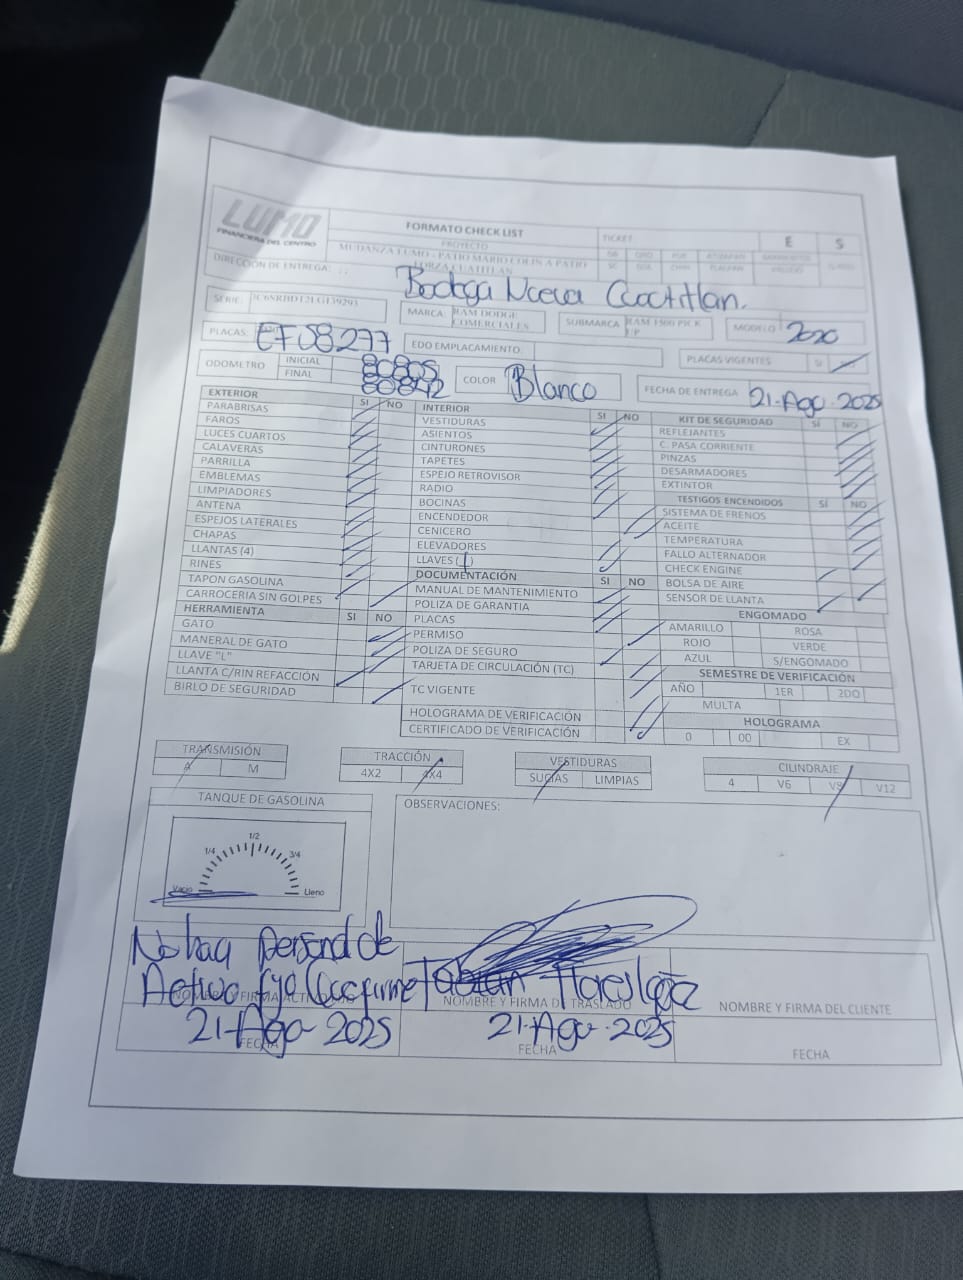 LUMO
FINANCIERA DEL CENTRO
FORMATO CHECK LIST
TICKET:
E
S
PROYECTO
MUDANZA LUMO - PATIO MARIO COLIN A PATIO
FORZA CUATITLAN
DIRECCIÓN DE ENTREGA:
Bodega Nueva Cuatitlan.
SERIE:
MARCA:
RAM DODGE
COMERCIALES
SUBMARCA
RAM 1500 PICK
UP
MODELO
2020
PLACAS:
EDO EMPLACAMIENTO:
PLACAS VIGENTES
SI
ODOMETRO
INICIAL
80805
FINAL
80842
COLOR
Blanco
FECHA DE ENTREGA
21-Ago-2025
EXTERIOR SI NO
PARABRISAS
FAROS
LUCES CUARTOS
CALAVERAS
PARRILLA
EMBLEMAS
LIMPIADORES
ANTENA
ESPEJOS LATERALES
CHAPAS
LLANTAS (4)
RINES
TAPON GASOLINA
CARROCERIA SIN GOLPES
HERRAMIENTA SI NO
GATO
MANERAL DE GATO
LLAVE "L"
LLANTA C/RIN REFACCIÓN
BIRLO DE SEGURIDAD
INTERIOR SI NO
VESTIDURAS
ASIENTOS
CINTURONES
TAPETES
ESPEJO RETROVISOR
RADIO
BOCINAS
ENCENDEDOR
CENICERO
ELEVADORES
LLAVES (1)
DOCUMENTACIÓN SI NO
MANUAL DE MANTENIMIENTO
POLIZA DE GARANTIA
PLACAS
PERMISO
POLIZA DE SEGURO
TARJETA DE CIRCULACIÓN (TC)
TC VIGENTE
HOLOGRAMA DE VERIFICACIÓN
CERTIFICADO DE VERIFICACIÓN
KIT DE SEGURIDAD SI NO
REFLEJANTES
C. PASA CORRIENTE
PINZAS
DESARMADORES
EXTINTOR
TESTIGOS ENCENDIDOS SI NO
SISTEMA DE FRENOS
ACEITE
TEMPERATURA
FALLO ALTERNADOR
CHECK ENGINE
BOLSA DE AIRE
SENSOR DE LLANTA
ENGOMADO
AMARILLO ROSA
ROJO VERDE
AZUL S/ENGOMADO
SEMESTRE DE VERIFICACIÓN
AÑO 1ER 2DO
MULTA
HOLOGRAMA
0 00 EX
TRANSMISIÓN
A M
TRACCIÓN
4X2 4X4
VESTIDURAS
SUCIAS LIMPIAS
CILINDRAJE
4 V6 V8 V12
TANQUE DE GASOLINA
1/4 1/2 3/4
Vacio Lleno
OBSERVACIONES:
No hay personal de
Activo fyo
NOMBRE Y FIRMA
21-Ago-2025
FECHA
Fabian
NOMBRE Y FIRMA DE TRASLADO
21-Ago-2025
FECHA
NOMBRE Y FIRMA DEL CLIENTE
FECHA